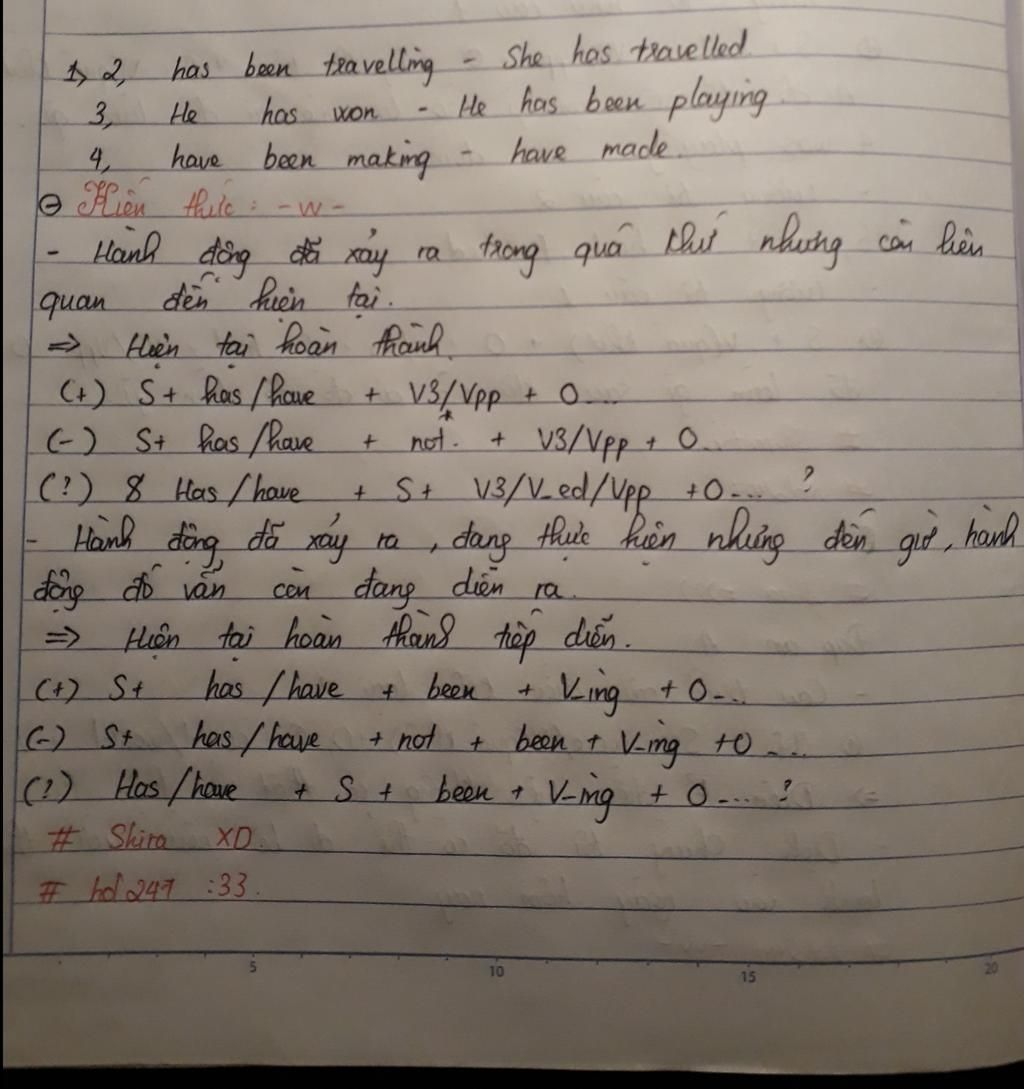 1, 2, has been travelling - She has travelled
3, He has won - He has been playing
4, have been making - have made.
⊖ Kiến thức: -w-
- Hành động đã xảy ra trong quá khứ nhưng còn liên
quan đến hiện tại.
=> Hiện tại hoàn thành.
(+) S+ has/have + V3/Vpp + O...
(-) S+ has/have + not. + V3/Vpp + O...
(?) Has/have + S+ V3/V_ed/Vpp +O... ?
- Hành động đã xảy ra, đang thực hiện nhưng đến giờ, hành
động đó vẫn còn đang diễn ra.
=> Hiện tại hoàn thành tiếp diễn.
(+) S+ has/have + been + V-ing + O...
(-) S+ has/have + not + been + V-ing +O....
(?) Has/have + S + been + V-ing + O.... ?
# Shira XD.
# hd247 :33.
5 10 15 20